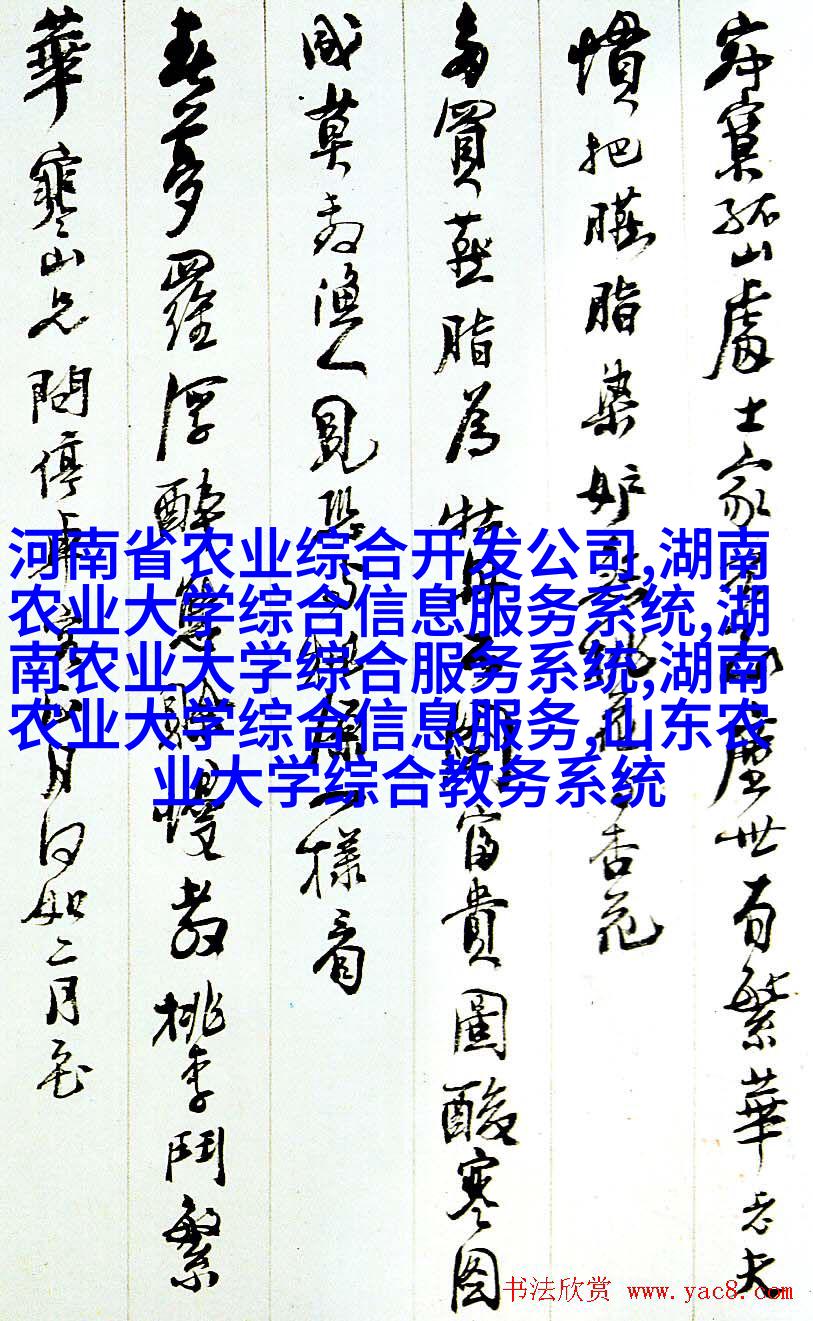 寂寞孤山處士家塵世有繁華老夫
慣把臙脂染妒杏花
多買燕脂為牡丹富貴圖酸寒圖
成莫教漁人覓恐樣看
春夢羅浮醉慢教桃李鬥繁
華寒山只問停車客月何如二月花
河南省农业综合开发公司,湖南
农业大学综合信息服务系统,湖
南农业大学综合服务系统,湖南
农业大学综合信息服务,山东农
业大学综合教务系统
书法欣赏 www.yac8.com